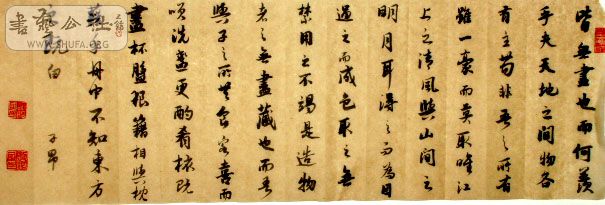 皆無盡也而何羨
乎夫天地之間物各
有主苟非吾之所有
雖一豪而莫取唯江
上之清風與山間之
明月耳得之而為目
遇之而成色取之無
禁用之不竭是造物
者之無盡藏也而吾
與子之所共食客喜而
笑洗盞更酌肴核既
盡杯盤狼籍相與枕
藉乎舟中不知東方
之既白 子昂
書藝公社
WWW.SHUFA.ORG